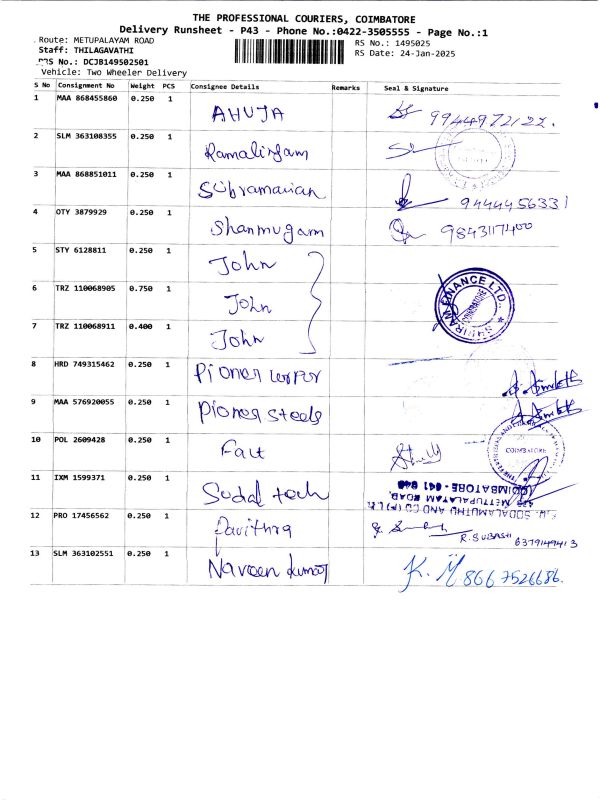 THE PROFESSIONAL COURIERS, COIMBATORE
Delivery Runsheet - P43 - Phone No.:0422-3505555 - Page No.:1
Route: METUPALAYAM ROAD
RS No.: 1495025
Staff: THILAGAVATHI
RS Date: 24-Jan-2025
DRS No.: DCJB149502501
Vehicle: Two Wheeler Delivery
S No Consignment No Weight PCS Consignee Details Remarks Seal & Signature
1 MAA 868455860 0.250 1 AHUJA
2 SLM 363108355 0.250 1 Ramalingam
3 MAA 868851011 0.250 1 Subramanian 9444456331
4 OTY 3879929 0.250 1 Shanmugam 9843117400
5 STY 6128811 0.250 1 John
6 TRZ 110068905 0.750 1 John
SHRIRAM FINANCE LTD.
7 TRZ 110068911 0.400 1 John
8 HRD 749315462 0.250 1 Pioner
9 MAA 576920055 0.250 1 Pioner Steels
10 POL 2609428 0.250 1 Fact
COIMBATORE
11 IXM 1599371 0.250 1 Sudal tech
SUDALAMUTHU AND CO (P) LTD
METTUPALAYAM ROAD,
COIMBATORE - 641
12 PRO 17456562 0.250 1 Pavithra R. SUBASH 6379149413
13 SLM 363102551 0.250 1 Naveen Kumar K. M 8667526686.